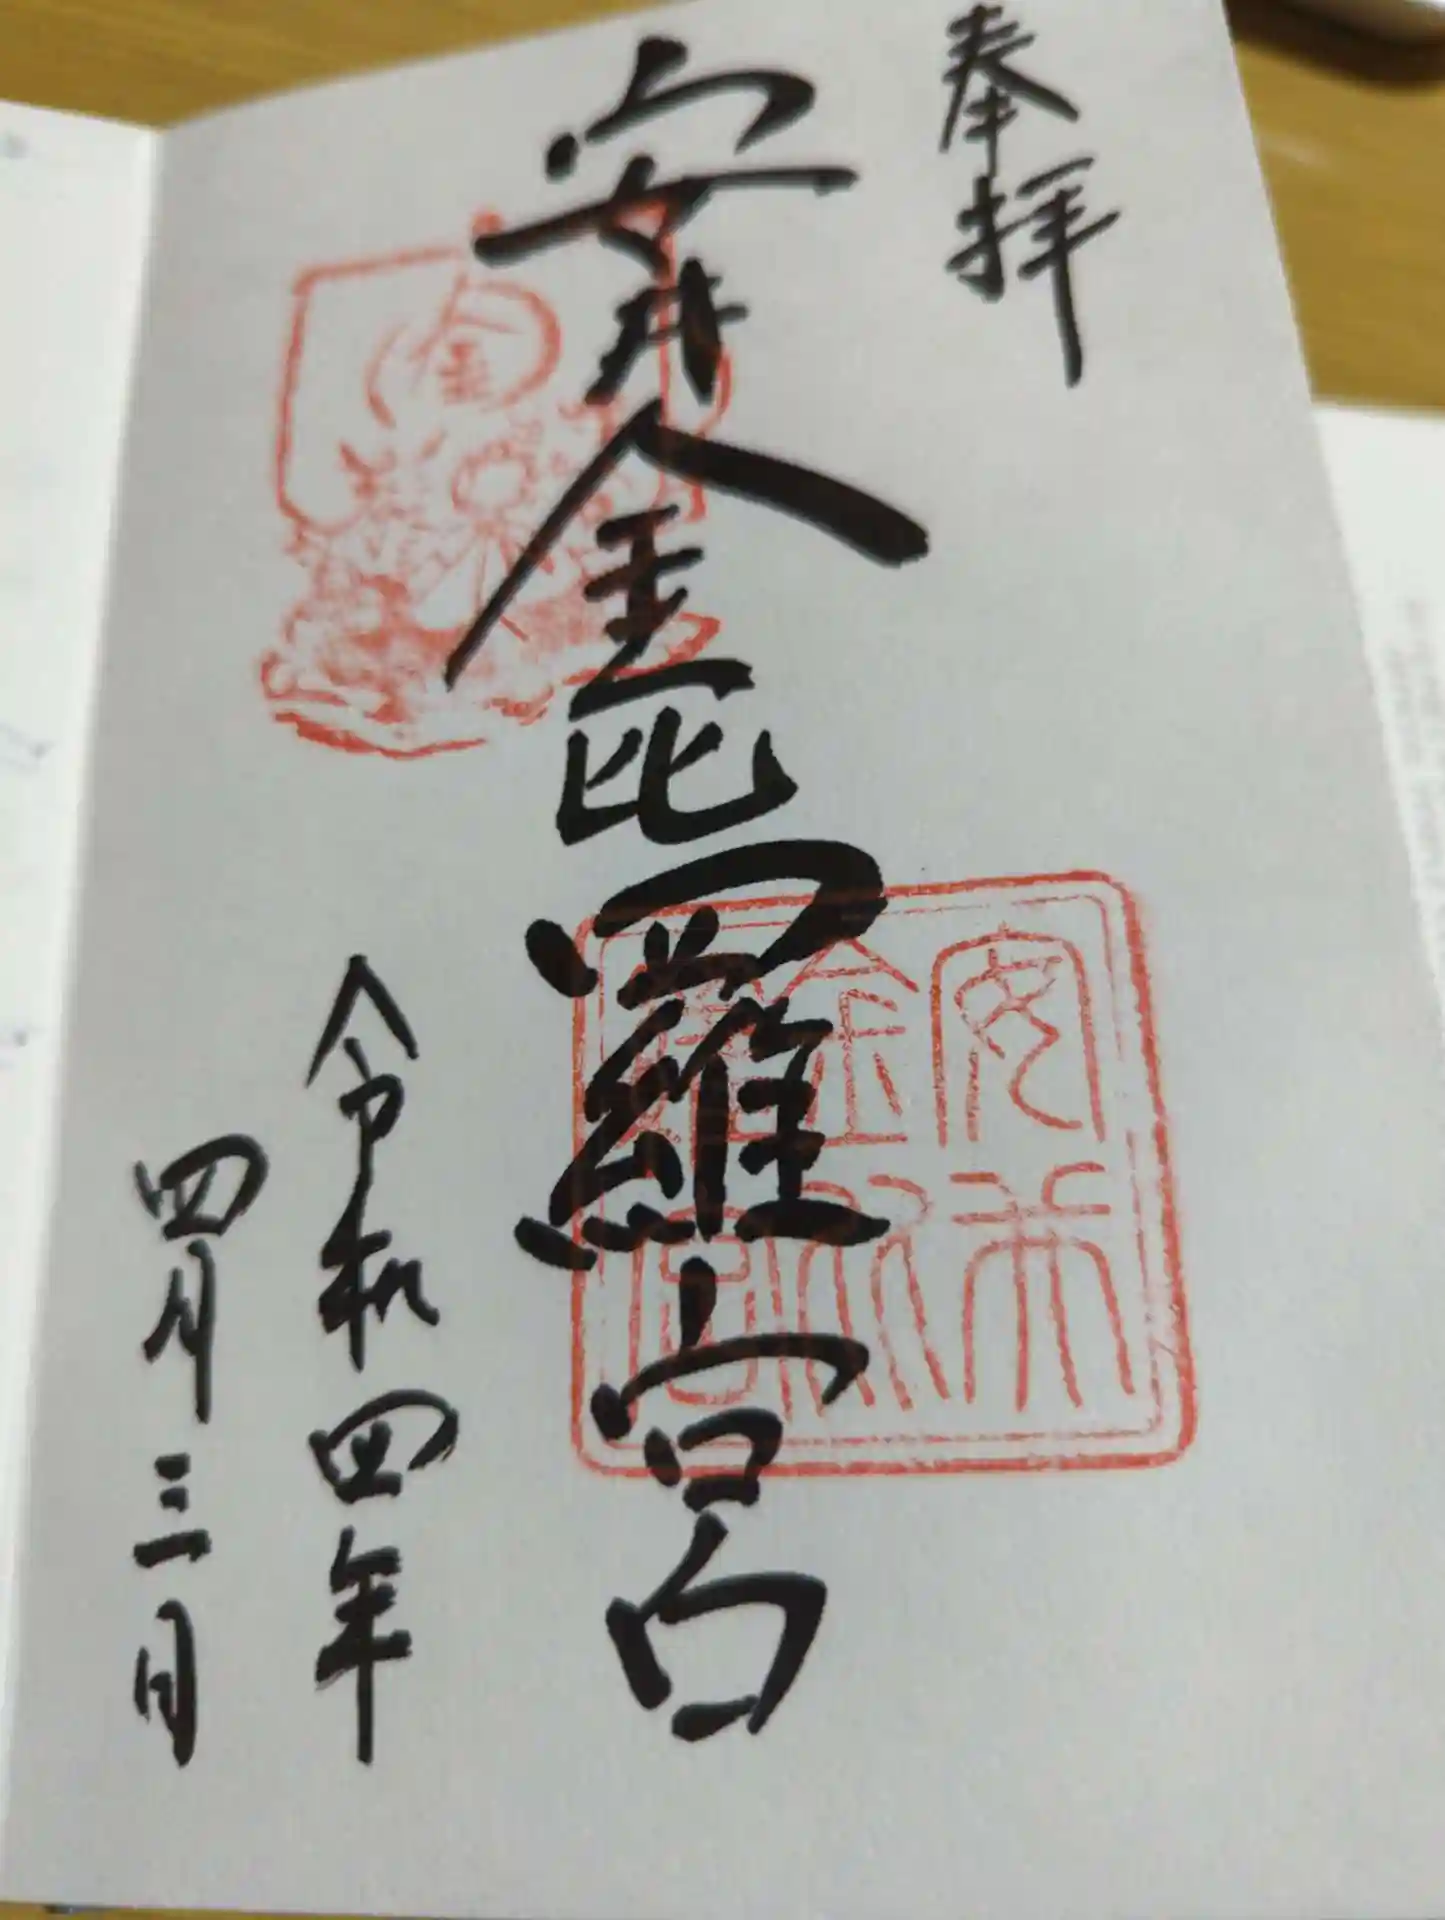 奉拝
安井金毘羅宮
令和四年
四月三日
金
安井金比羅宮